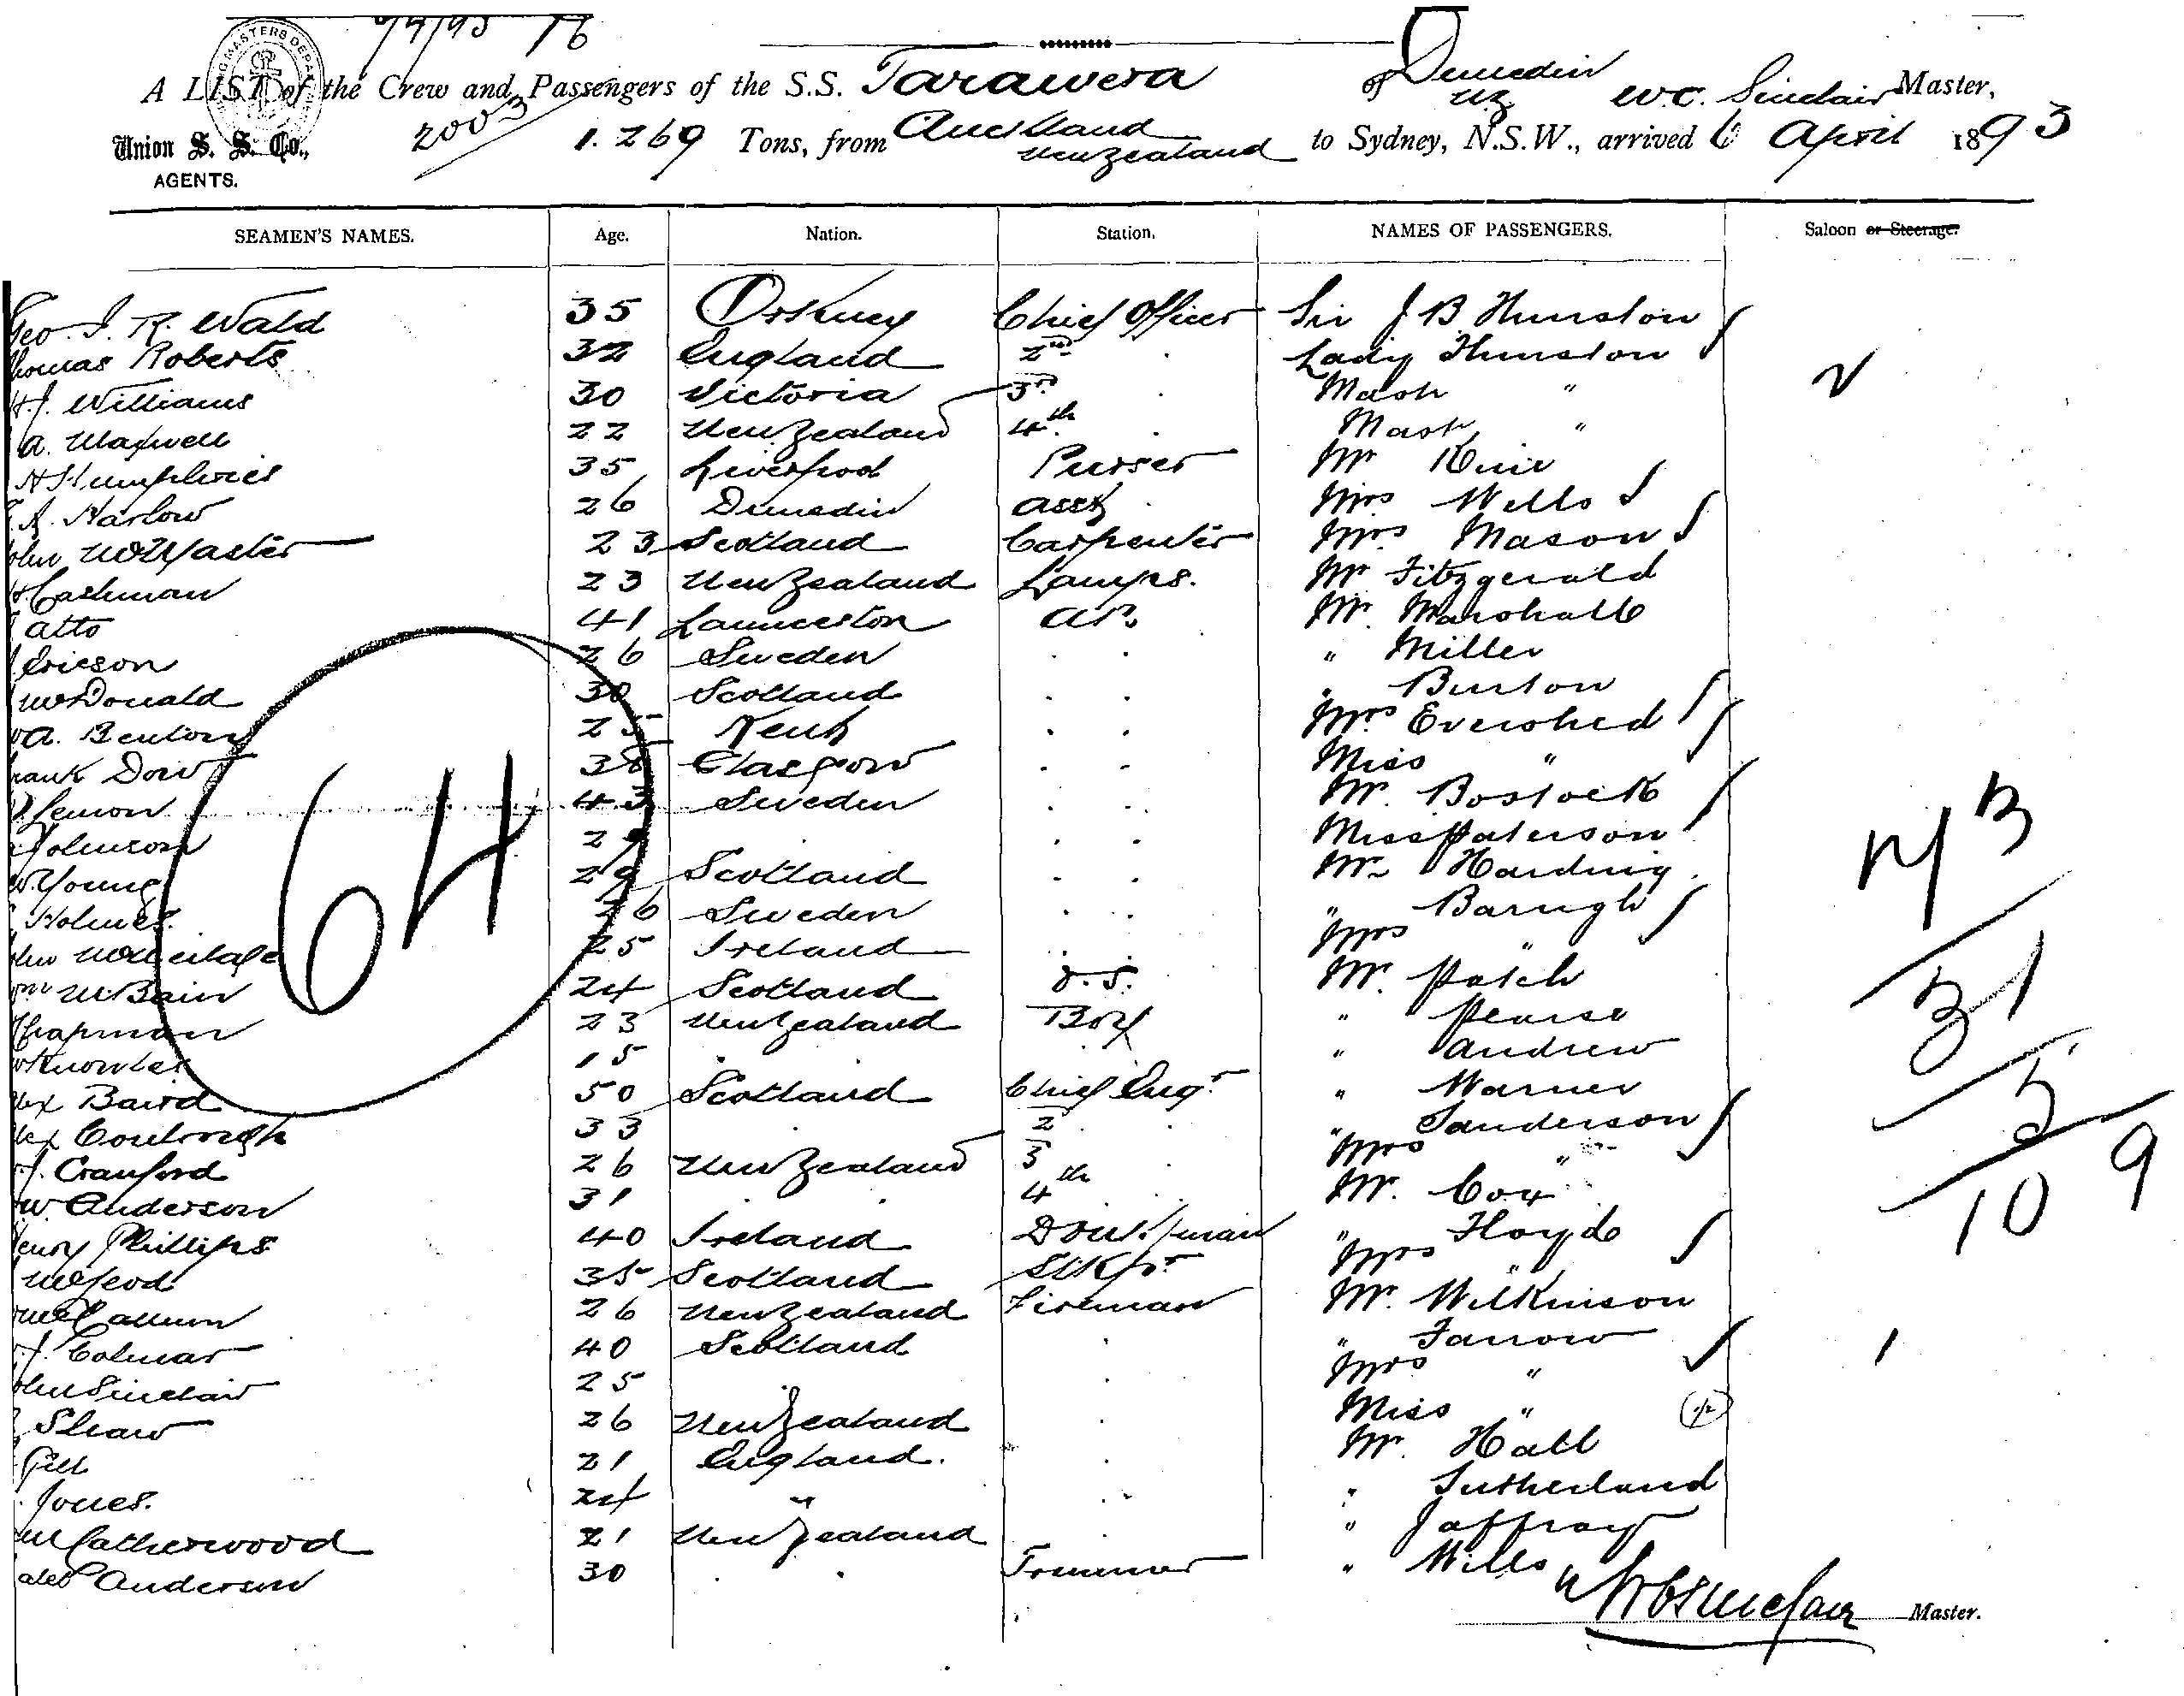 7/4/93 76
A LIST of the Crew and Passengers of the S.S. Tarawera of Dunedin N.Z. W.C. Sinclair Master,
Union S. S. Co., 2003 1.269 Tons, from Auckland New Zealand to Sydney, N.S.W., arrived 6 April 1893
AGENTS.
SEAMEN'S NAMES. Age. Nation. Station. NAMES OF PASSENGERS. Saloon or Steerage.
Geo. J. R. Wald 35 Orkney Chief Officer Sir J B Thurston
Thomas Roberts 32 England 2nd Lady Thurston
H.J. Williams 30 Victoria 3rd Mastr "
A. Maxwell 22 New Zealand 4th Mastr "
H Humphries 35 Liverpool Purser Mr Muir
A. Harlow 26 Dunedin Asst Mrs Wells
John McMaster 23 Scotland Carpenter Mrs Mason
Cashman 23 New Zealand Lamps. Mr Fitzgerald
Atto 41 Launceston A.B. Mr. Marshall
Ericson 26 Sweden . . " Miller
McDonald 30 Scotland . . " Burton
A. Benton 25 Kent . . Mrs Evershed
Frank Dow 38 Glasgow . . Miss "
Lemon 43 Sweden . . Mr. Bostock
Johnson 29 . . . Miss Paterson
W. Young 29 Scotland . . Mr Harding
Holmes. 26 Sweden . . " Barugh
John 25 Ireland . . Mrs "
Wm McBain 24 Scotland O.S. Mr. Patch
Chapman 23 New Zealand Boy " Pearse
Knowles 15 . " Andrew
Alex Baird 50 Scotland Chief Engr " Warner
Alex 33 . 2 . " Sanderson
J. Cranford 26 New Zealand 3 . Mrs "
W. Anderson 31 . . 4th . Mr. Cox
Henry Phillips 40 Ireland Donk/man " Floyd
McLeod 35 Scotland Stkpr Mrs "
McCallum 26 New Zealand Fireman Mr. Wilkinson
J. Colmar 40 Scotland . " Farrow
John Sinclair 25 . . Mrs "
Shaw 26 New Zealand . Miss "
Gill 21 England. . Mr. Hall
Jones. 24 " . " Sutherland
Catherwood 21 New Zealand . " Jaffray
Anderson 30 . . Trimmer " Wills
64
31
5
109
1
W C Sinclair Master.